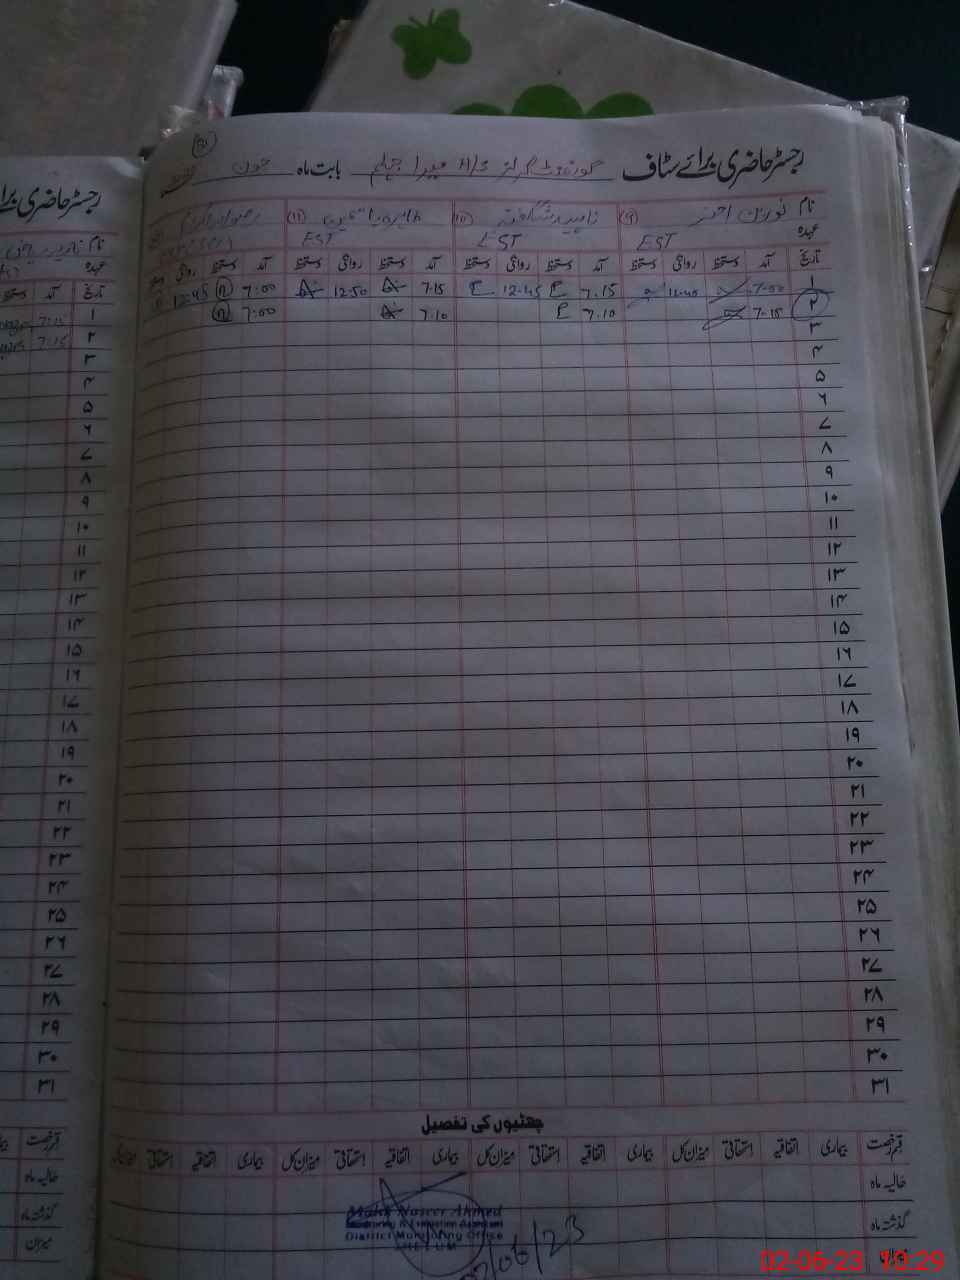 رجسٹر حاضری برائے سٹاف گورنمنٹ گرلز H/S بابت ماہ جون
نام نورین اختر (۹) ناہید شگفتہ (۱۰) طاہرہ یاسمین (۱۱)
عہدہ EST EST EST
تاریخ آمد دستخط روانگی دستخط آمد دستخط روانگی دستخط آمد دستخط روانگی دستخط آمد دستخط روانگی
۱ 7-00 12-40 7.15 12-45 7.15 12.50 7:00 12-45
۲ 7-15 7.10 7.10 7:00
۳
۴
۵
۶
۷
۸
۹
۱۰
۱۱
۱۲
۱۳
۱۴
۱۵
۱۶
۱۷
۱۸
۱۹
۲۰
۲۱
۲۲
۲۳
۲۴
۲۵
۲۶
۲۷
۲۸
۲۹
۳۰
۳۱
چھٹیوں کی تفصیل
قسم رخصت بیماری اتفاقیہ استحقاقی میزان کل بیماری اتفاقیہ استحقاقی میزان کل بیماری اتفاقیہ استحقاقی میزان کل بیماری اتفاقیہ استحقاقی
حالیہ ماہ
گذشتہ ماہ
میزان
Naseer Ahmed
District Monitoring Office
JHELUM
02/06/23
رجسٹر حاضری
نام
عہدہ
تاریخ آمد دستخط
۱ 7:15
۲ 7.15
۳
۴
۵
۶
۷
۸
۹
۱۰
۱۱
۱۲
۱۳
۱۴
۱۵
۱۶
۱۷
۱۸
۱۹
۲۰
۲۱
۲۲
۲۳
۲۴
۲۵
۲۶
۲۷
۲۸
۲۹
۳۰
۳۱
قسم رخصت
حالیہ ماہ
گذشتہ ماہ
میزان
02-06-23 10:29